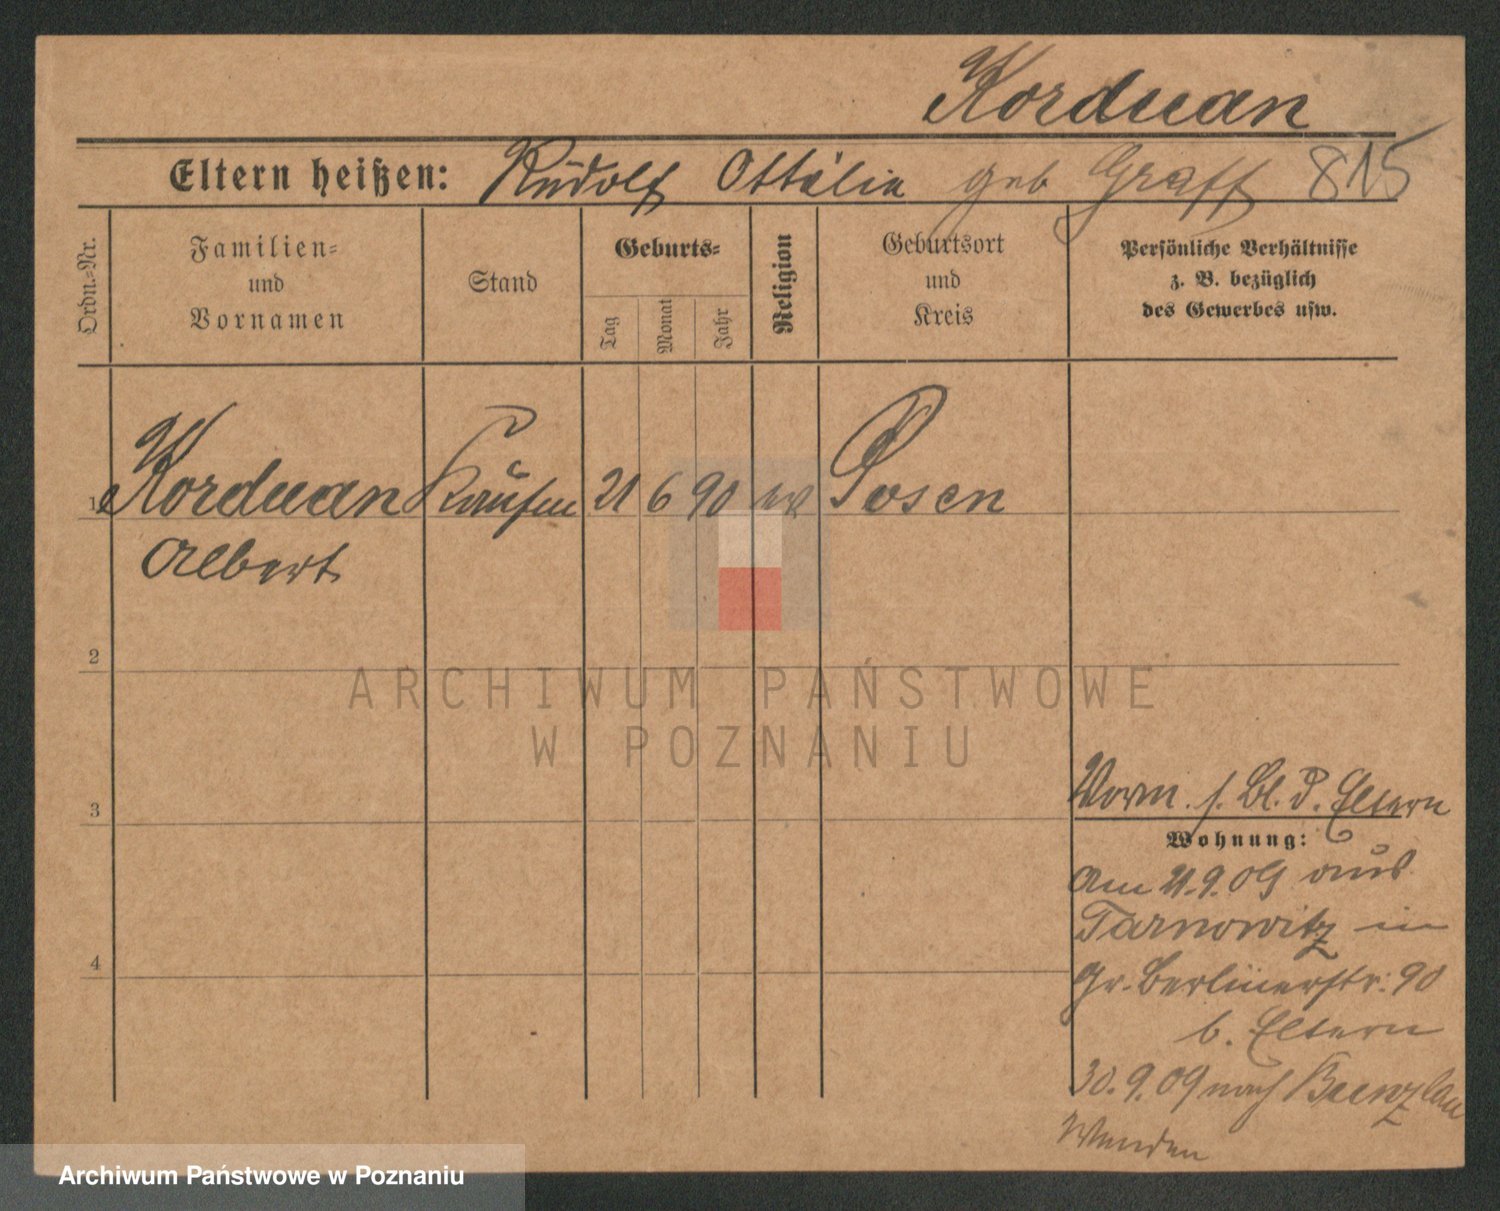 Korduan
Eltern heißen: Rudolf Ottilie geb Graff 815
Ordn.-Nr.
Familien-
und
Vornamen
Stand
Geburts-
Tag
Monat
Jahr
Religion
Geburtsort
und
Kreis
Persönliche Verhältnisse
z. B. bezüglich
des Gewerbes usw.
1 Korduan Kaufm 21 6 90 ev Posen
Albert
2
3
4
ARCHIWUM PAŃSTWOWE
W POZNANIU
Vorm. s. Bl. d. Eltern
Wohnung:
Am 21.9.09 aus
Tarnowitz in
Gr. Berlinerstr. 90
b. Eltern
30.9.09 nach Bunzlau
Wenden
Archiwum Państwowe w Poznaniu